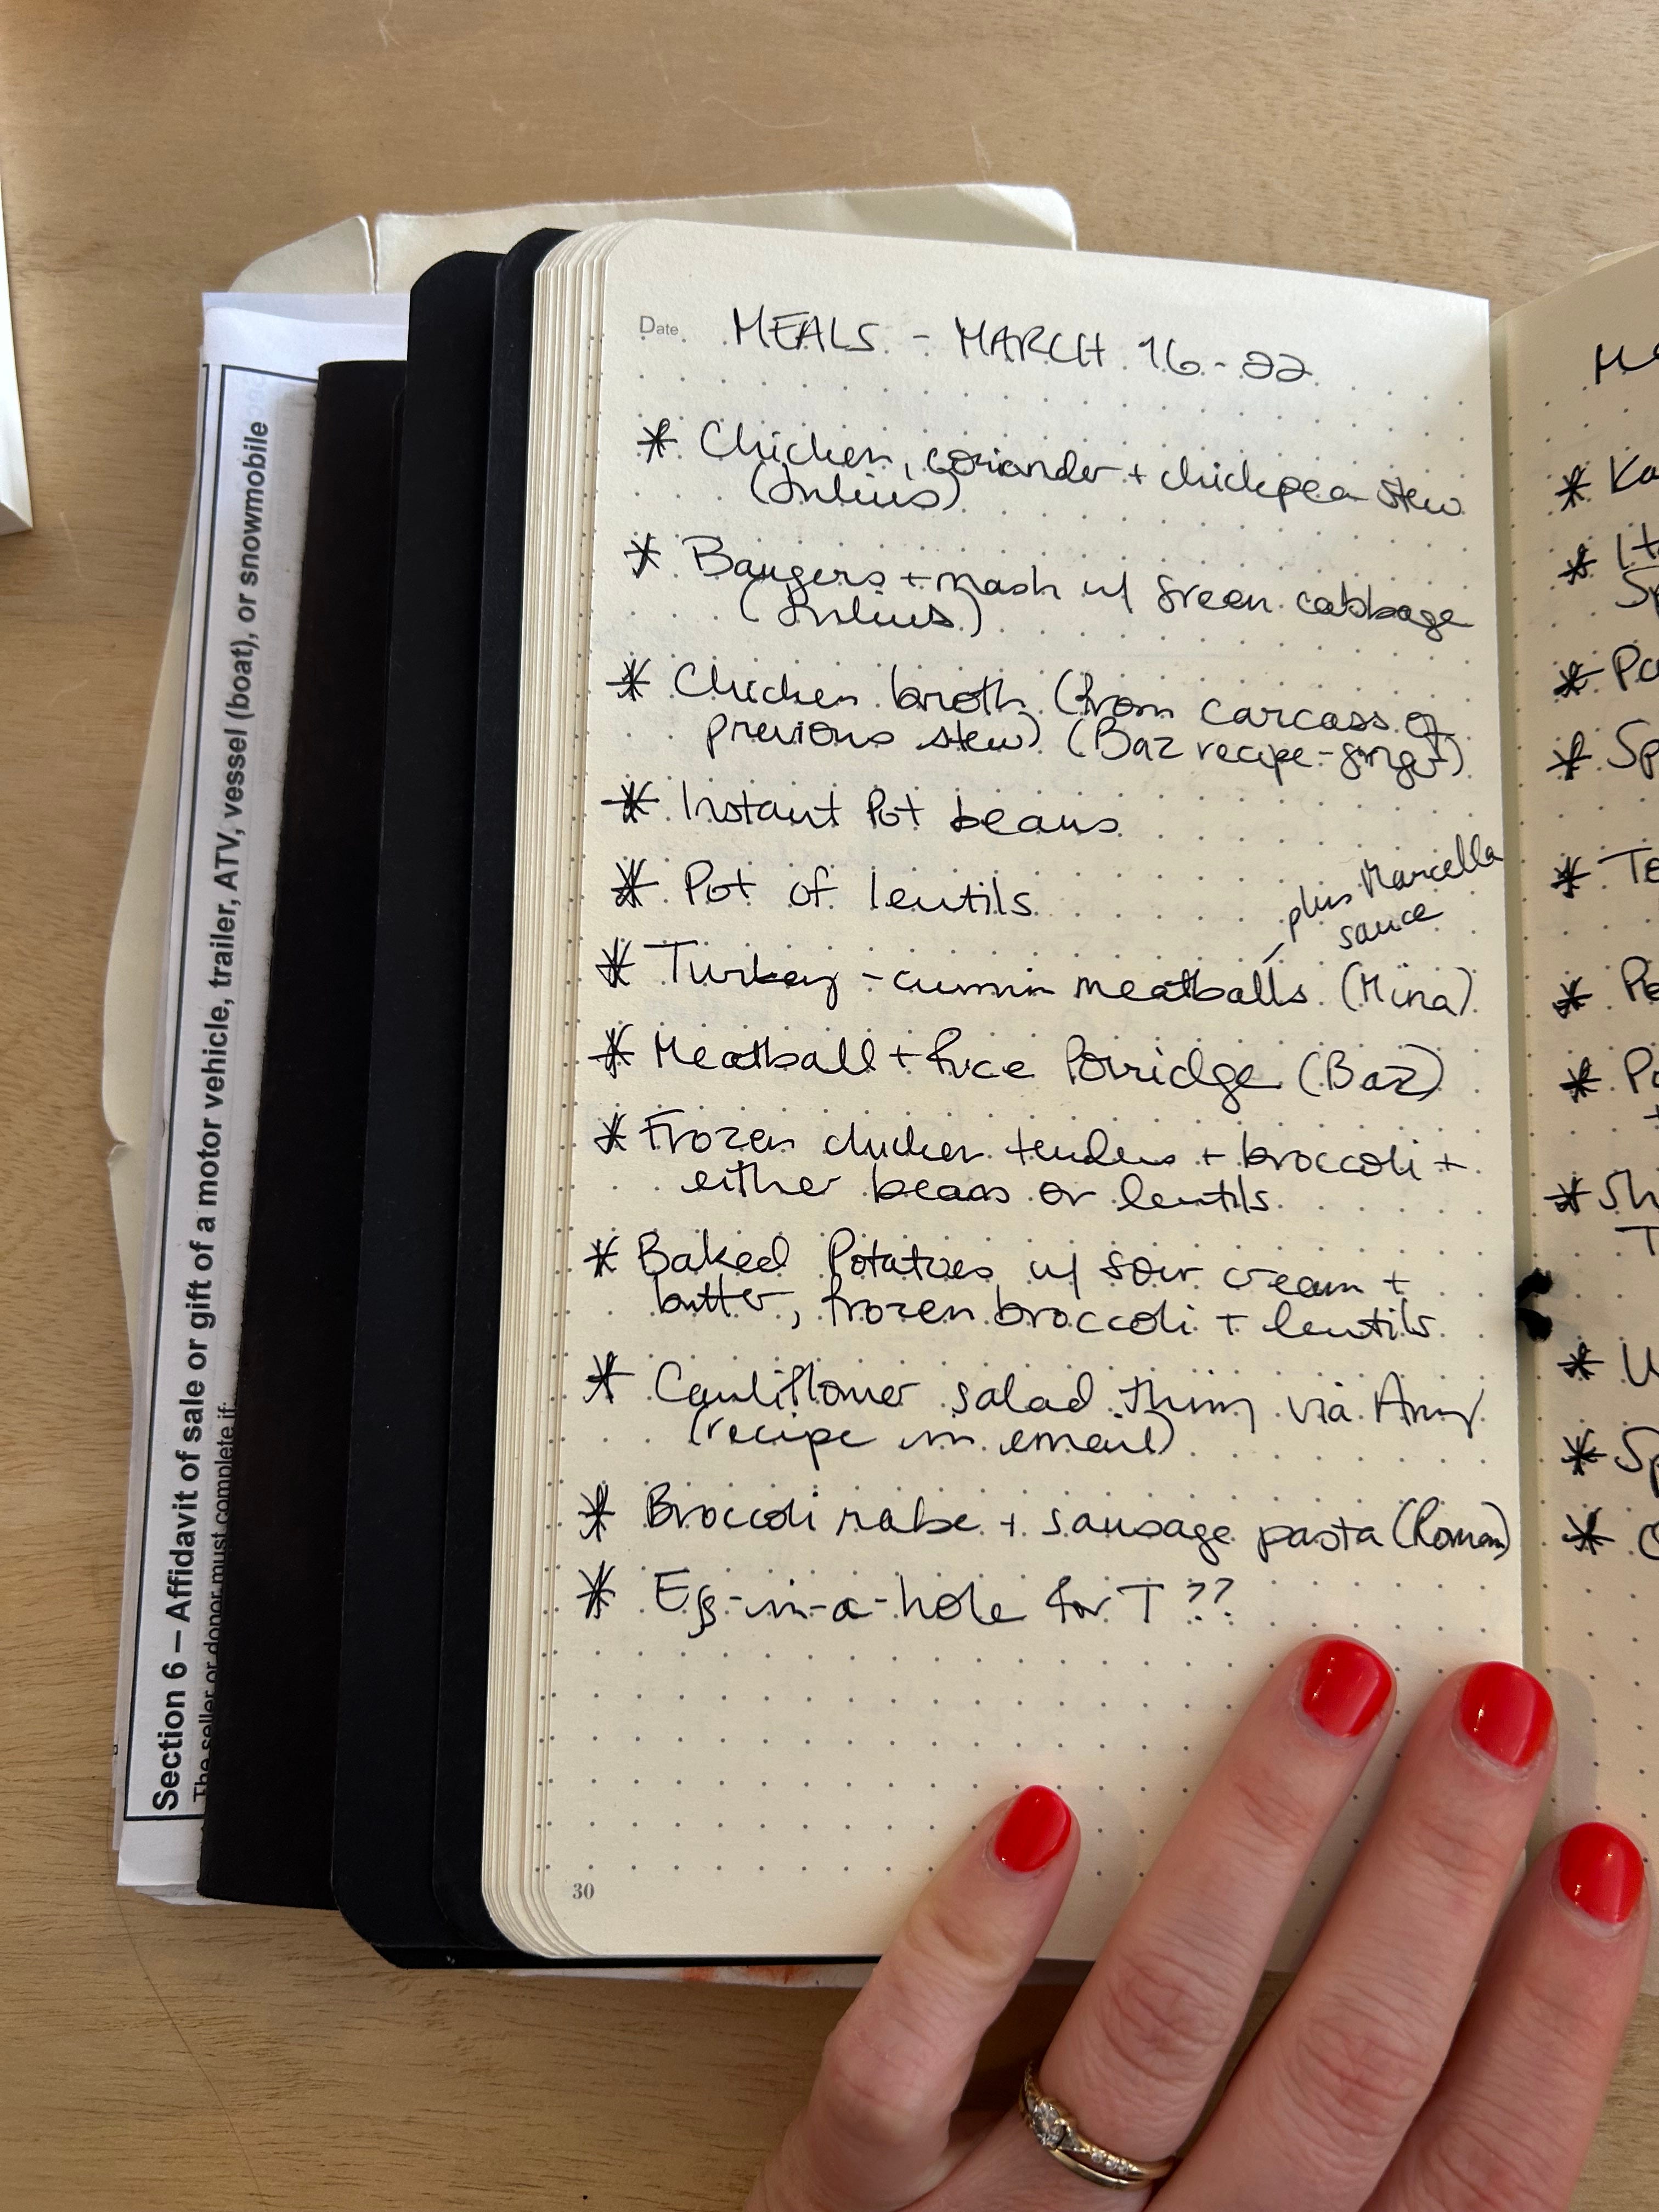 Section 6 – Affidavit of sale or gift of a motor vehicle, trailer, ATV, vessel (boat), or snowmobile
The seller or donor must complete if:
Date
MEALS - MARCH 16-22
* Chicken, coriander + chickpea stew
(Julius)
* Bangers + mash w/ green cabbage
(Julius)
* Chicken broth (from carcass of
previous stew) (Baz recipe - ginger)
* Instant Pot beans
* Pot of lentils
plus Marcella
sauce
* Turkey - cumin meatballs (Mina)
* Meatball + Rice Porridge (Baz)
* Frozen chicken tenders + broccoli +
either beans or lentils
* Baked Potatoes w/ sour cream +
butter, frozen broccoli + lentils
* Cauliflower salad thing via Amy
(recipe in email)
* Broccoli rabe + sausage pasta (Roman)
* Egg-in-a-hole for T??
30
* Ka
* It
Sp
* Pa
* Sp
* Te
* Pe
* Pa
+
* Sh
T
* Sp